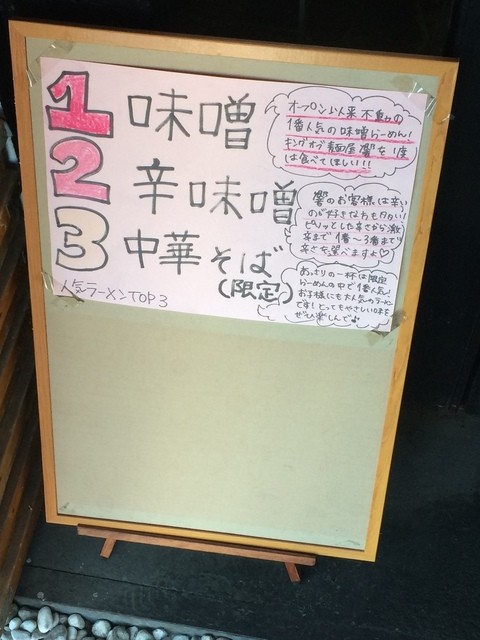 1 味噌
オープン以来不動の
1番人気の味噌らーめん！
キングオブ麺屋響を1度
は食べてほしい！！！
2 辛味噌
響のお客様は辛い
のが好きな方も多い！
ピリッとした辛さから激
辛まで1番〜3番まで
辛さを選べますよ♡
3 中華そば
(限定)
あっさりの一杯は限定
らーめんの中で1番人気！
お子様にも大人気のラーメン
です！とってもやさしい味を
ぜひ楽しんで♪
人気ラーメンTOP3